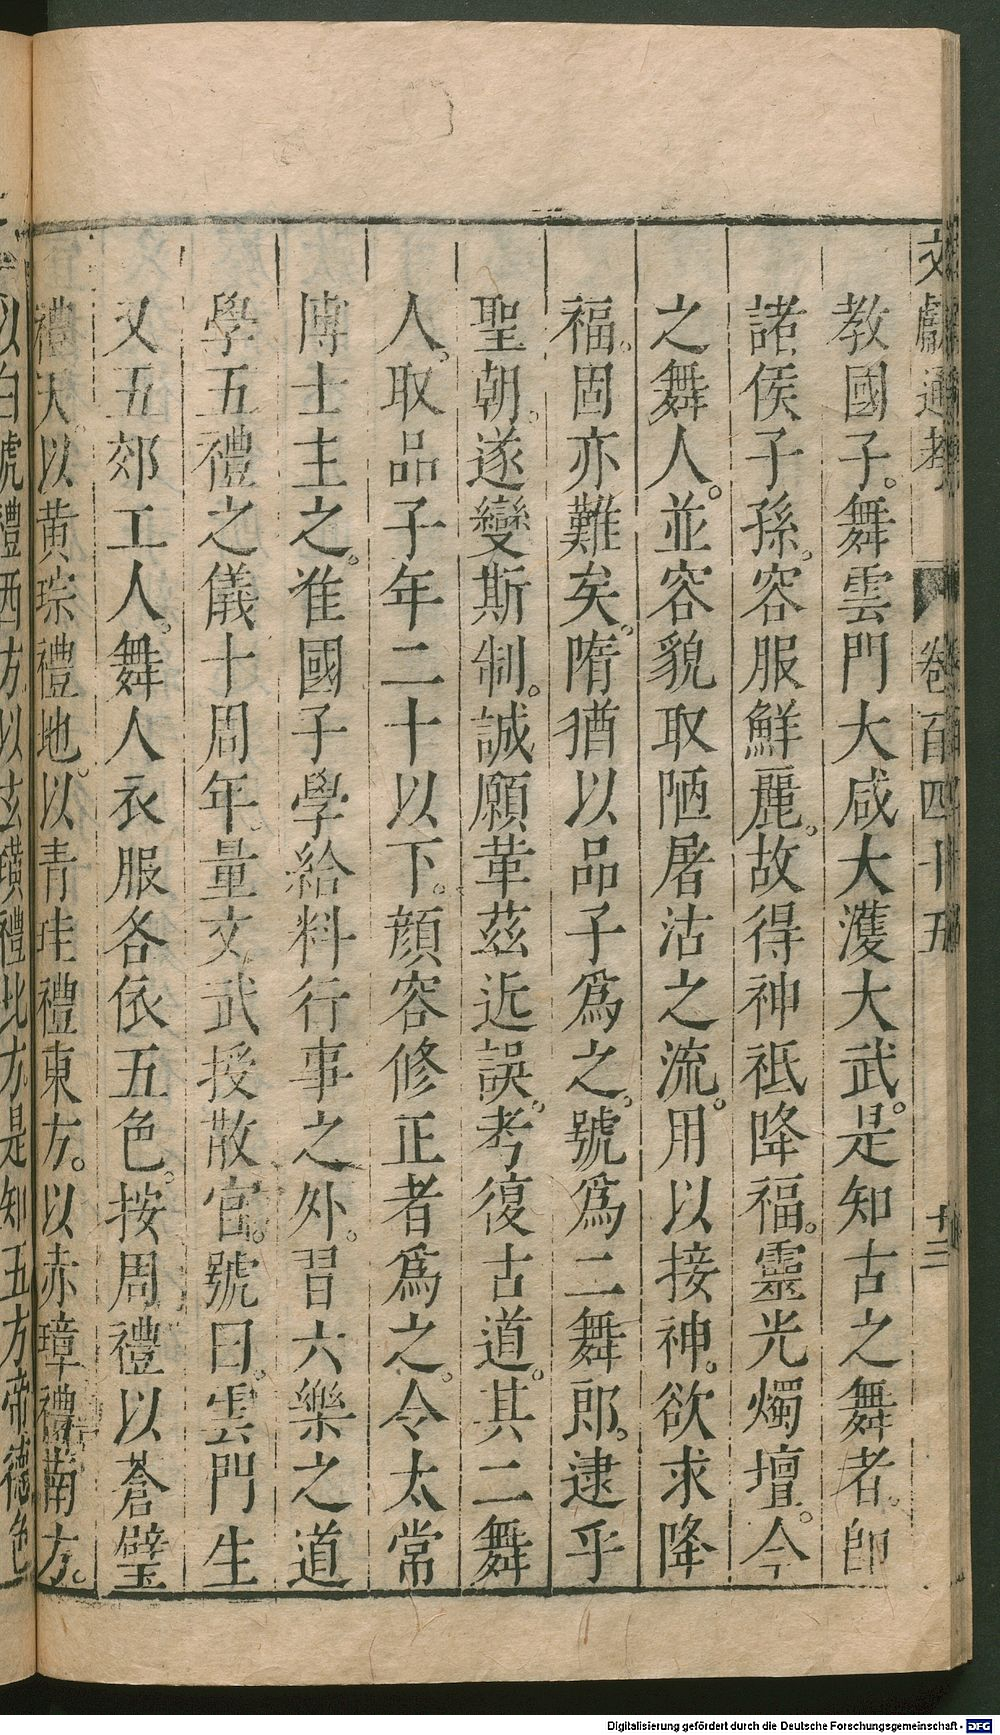 文獻通考 卷百四十五 十三
教國子。舞雲門大咸大濩大武。是知古之舞者。卽
諸侯子孫。容服鮮麗。故得神祇降福。靈光燭壇。今
之舞人。並容貌取陋屠沽之流。用以接神。欲求降
福。固亦難矣。隋猶以品子爲之。號爲二舞郎。逮乎
聖朝。遂變斯制。誠願革茲近誤。考復古道。其二舞
人。取品子年二十以下。顔容修正者爲之。令太常
博士主之。准國子學給料行事之外。習六樂之道
學五禮之儀十周年。量文武授散官。號曰。雲門生
又五郊工人。舞人衣服各依五色。按周禮以蒼璧
禮天。以黄琮禮地。以青珪禮東方。以赤璋禮南方。
以白琥禮西方以玄璜禮北方是知五方帝德色
Digitalisierung gefördert durch die Deutsche Forschungsgemeinschaft - DFG